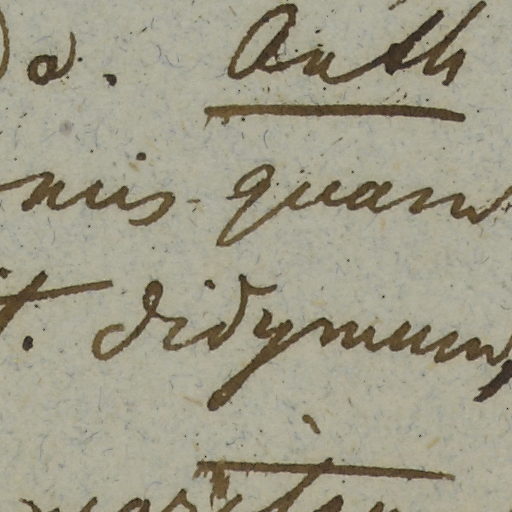 a. Anth
nis quam
t. didymum,